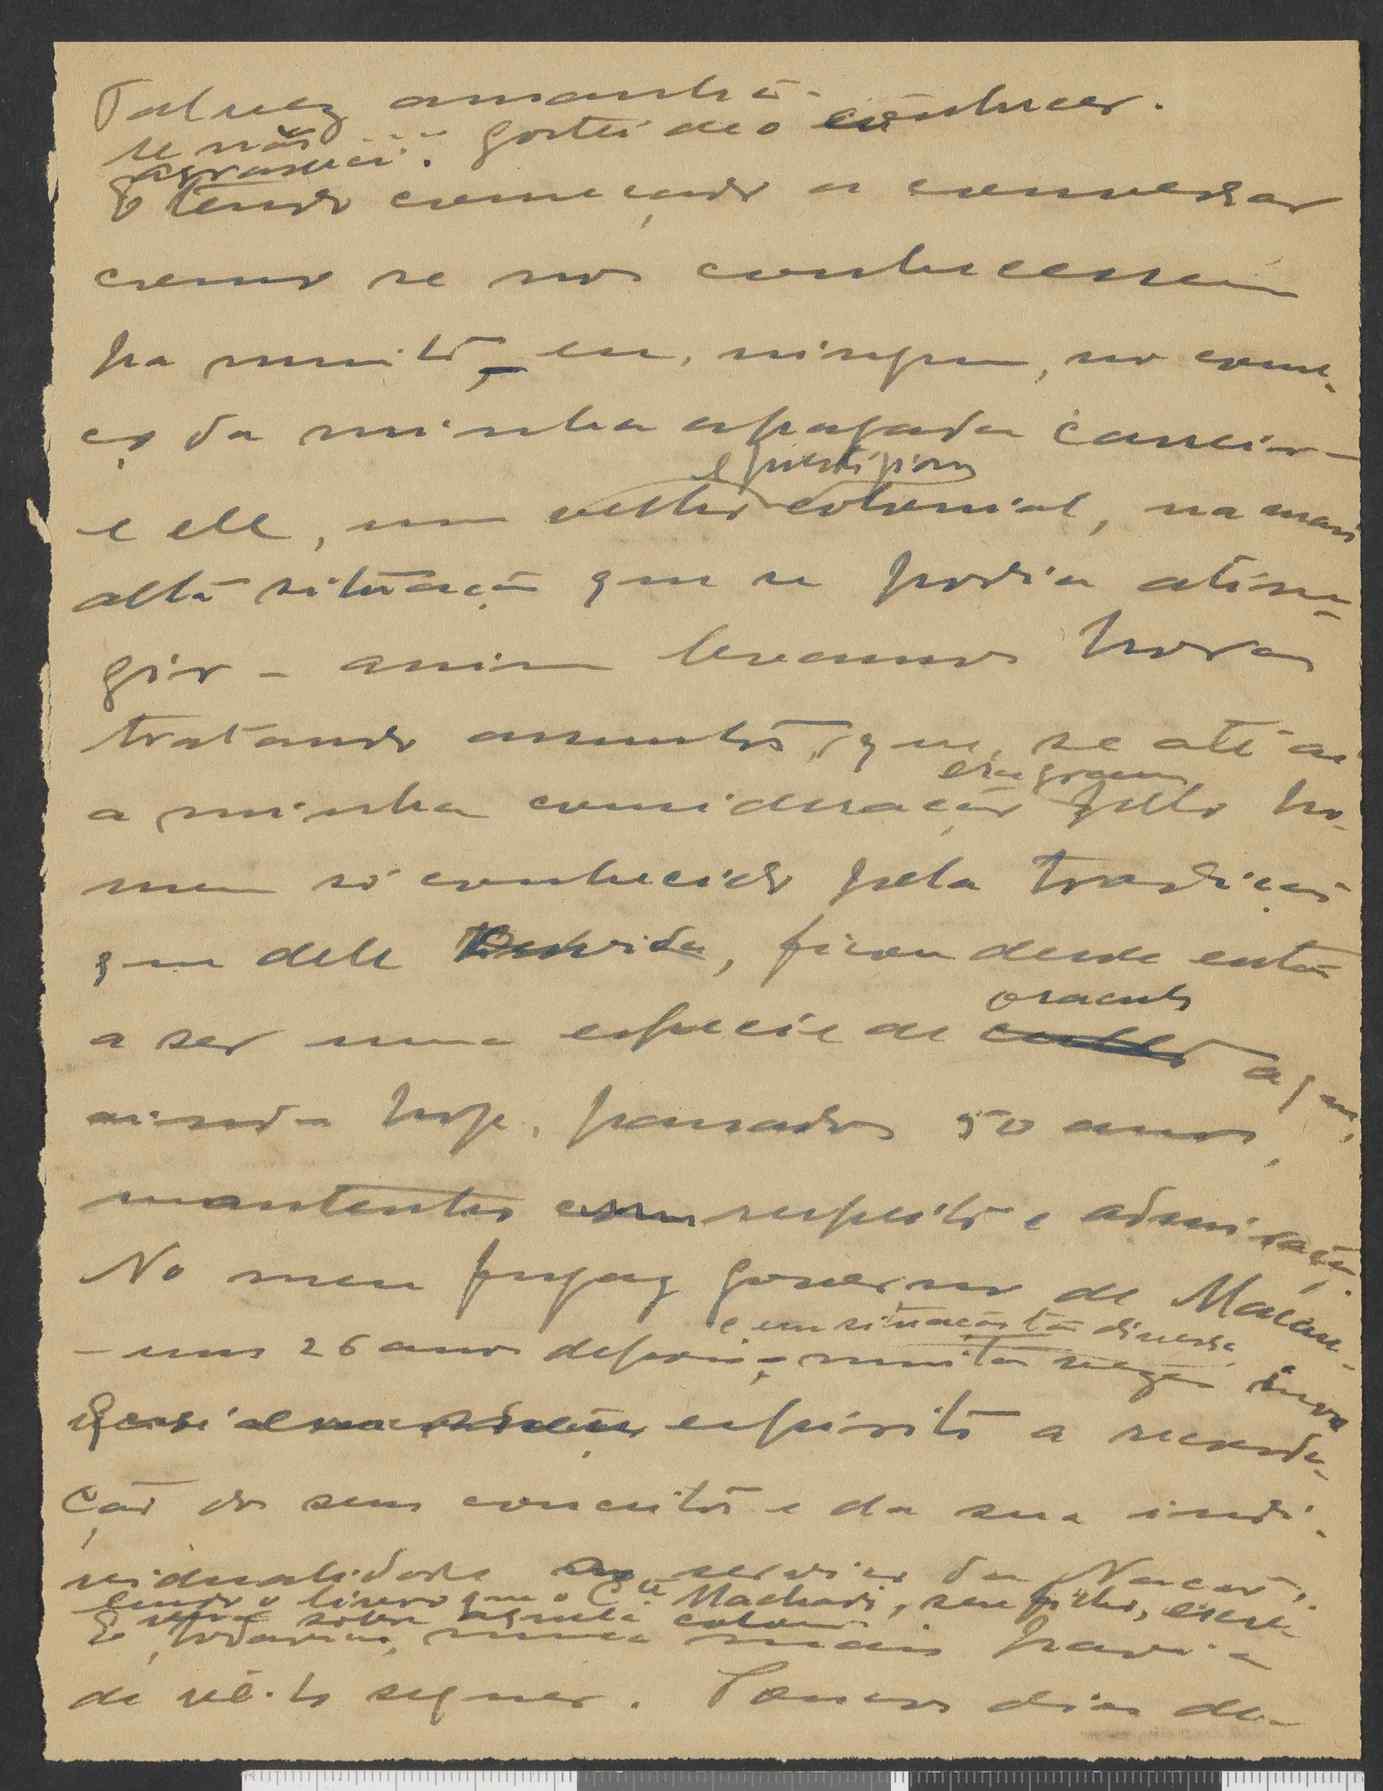 Talvez amanhã.
se não ... gostei de o conhecer.
agradeci.
E tendo começado a conversar
como se nos conhecessem
ha muito, eu, ninguem, no come-
ço da minha apagada carreira -
e prestigioso
e elle, um velho colonial, na mais
alta situação que se podia atin-
gir - assim levamos horas
tratando assuntos, que, se até ai
era grande
a minha consideração pelo ho-
mem só conhecido pela tradição
que dele havia, ficou desde então
a ser uma especie de
oraculo
a que,
ainda hoje, passados 50 anos,
mantenho com respeito e admiração.
No meu fugaz governo de Macau -
e em situação tão diversa
- uns 26 anos depois, muitas vezes
espirito a recorda-
ção dos seus conceitos e da sua indi-
vidualidade ao serviço da Nação,
lendo o livro que o C.te Machado, seu filho, escre-
veu sobre aquela colonia
E, todavia, nunca mais havia
de vê-lo sequer. Poucos dias de-